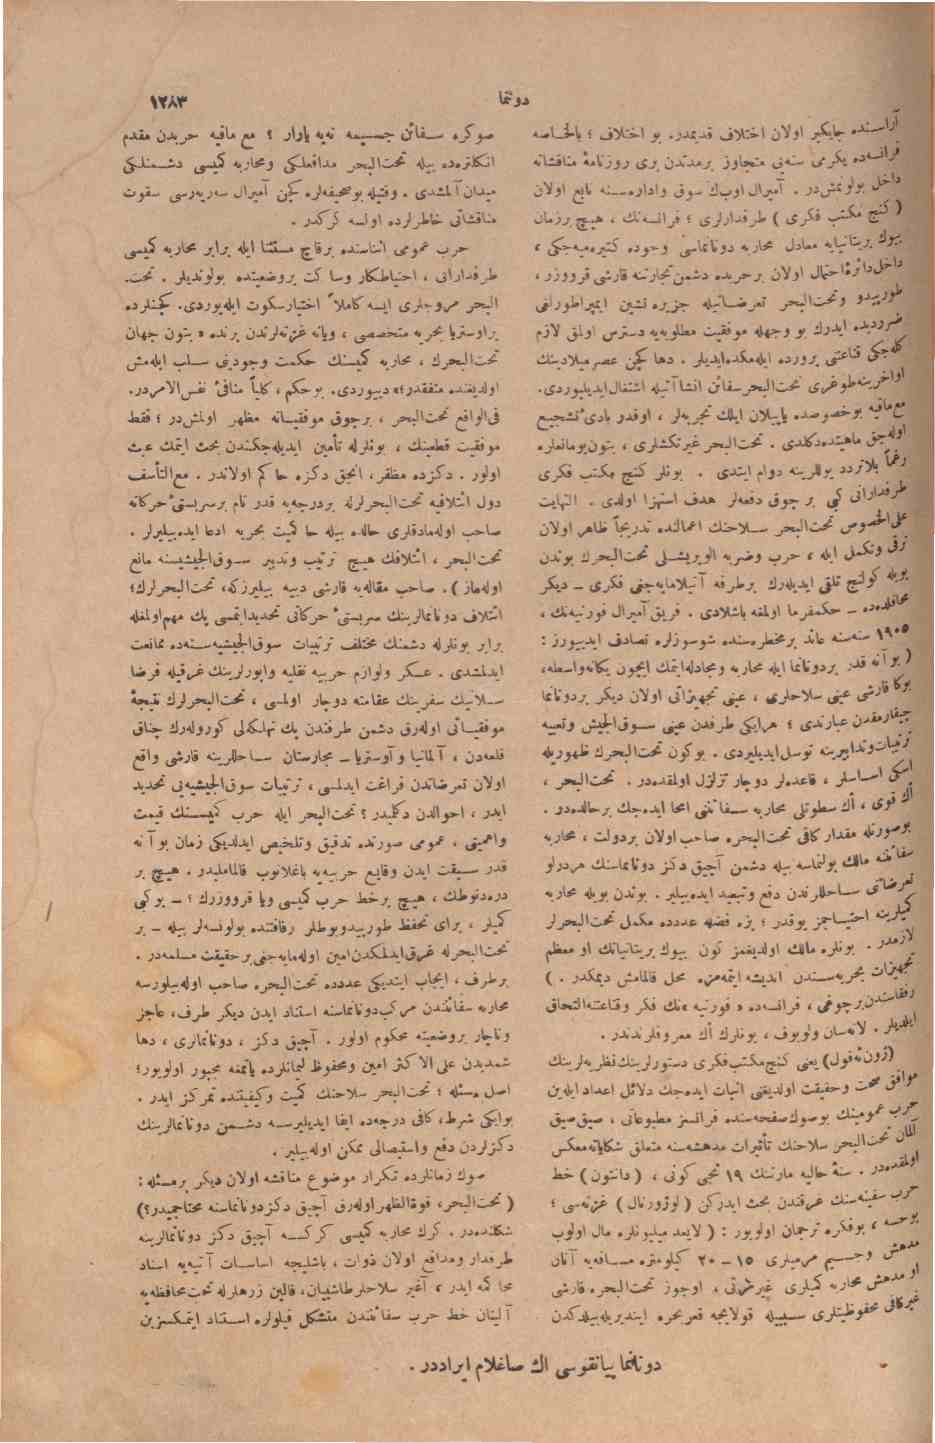 دوننما
١٢٨٣
آراسنده جايكير اولان اختلاف قديمدر. بو اختلاف ؛ بالخاصه
فرانسه‌ده يكرمى سنه‌يى متجاوز برمدتدن برى روزنامهٔ مناقشاته
داخل بولونمش‌در . آميرال اوب‌ك سوق واداره‌سنه تابع اولان
( كنج مكتب فكرى ) طرفدارلرى ؛ فرانسه‌نك ، هيچ برزمان
بيوك بريتانيايه معادل محاربه دونانماسى وجوده كتيره‌ميه‌جكى ،
داخل دائرهٔ احتمال اولان برحربده دشمن تجارتنه قارشى قرووزر ،
طورپيدو وتحت‌البحر تعرضاتيله جزيره نشين ايمپراطورلغى
ضررديده ايدرك بو وجهله موفقيت مطلوبه‌يه دسترس اولمق لازم
كله‌جكى قناعتنى پرورده ايله‌مكده‌ايديلر. دها كچن عصر ميلادينك
اواخرينه‌طوغرى تحت‌البحر سفائن انشاآتيله اشتغال ايديليوردى.
مع‌مافيه بوخصوصده ياپيلان ايلك تجربه‌لر ، اوقدر بادئ تشجيع
اوله‌جق ماهيتده‌دكلدى. تحت‌البحر غيرتكشلرى ، بتون‌بوموانعلره
رغماً بلاتردد يوللرينه دوام ايتدى . بونلر كنج مكتب فكرى
طرفدارانى كبى بر چوق دفعه‌لر هدف استهزا اولدى . النهايت
على‌الخصوص تحت‌البحر سلاحنك اعمالنده تدريجاً ظاهر اولان
ترقى وتكمل ايله ، حرب وضربه الويريشلى تحت‌البحرك بوندن
بويله كولنج تلقى ايديله‌رك برطرفه آتيلامايه‌جغى فكرى – ديكر
محافلده‌ده – حكمفرما اولمغه باشلادى. فريق آميرال فورنيه‌نك ،
١٩٠٥ سنه‌سنه عائد برمخطره‌سنده شوسوزلره تصادف ايديورز :
( بو آنه قدر بردونانما ايله محاربه ومجادله‌ايتمك ايچون يكانه‌واسطه،
بوكا قارشى عينى سلاحلرى ، عينى تجهيزاتى اولان ديكر بردونانما
چيقارمقدن عبارتدى ؛ هرايكى طرفدن عينى سوق‌الجيش وتعبيه
ترتيبات‌وتدابيرينه توسل‌ايديليردى. بوكون تحت‌البحرك ظهوريله
اسكى اساسلر ، قاعده‌لر دوچار تزلزل اولمقده‌در. تحت‌البحر ،
اك قوى ، اك سطوتلى محاربه سفائننى امحا ايده‌جك برحالده‌در.
بوصورتله مقدار كافى تحت‌البحره صاحب اولان بردولت ، محاربه
سفائننه مالك بولنماسه بيله دشمن آچيق دكز دونانماسنك هردرلو
تعرضاتى ساحللرندن دفع وتبعيد ايده‌بيلير. بوندن بويله محاربه
كميلرينه احتياجمز يوقدر ؛ بزه فضله عددده مكمل تحت‌البحرلر
لازمدر. بونلره مالك اولديغمز كون بيوك بريتانيانك او معظم
تجهيزات بحريه‌سندن انديشه ايتمه‌مزه محل قالمامش ديمكدر . )
رفقاسندن برچوغى ، فرانسه‌ده « فورنيه »نك فكر وقناعتنه‌التحاق
ايلديلر. لانه‌سان ولوبوف ، بونلرك اك معروفلرندندر.
(ژون‌ئه‌قول) يعنى كنج‌مكتب‌فكرى دستورلرينك‌نظريه‌لرينك
موافق صحت وحقيقت اولديغنى اثبات ايده‌جك دلائل اعداد ايله‌ين
حرب عمومينك بوصوك صفحه‌سنده فرانسز مطبوعاتى ، صيق‌صيق
آلمان تحت‌البحر سلاحنك تأثيرات مدهشه‌سنه متعلق شكاياته‌معكس
اولمقده‌در. سنهٔ حاليه مارتنك ١٩ نجى كونى ، (دانتون) خط
حرب سفينه‌سنك غرقندن بحث ايدركن ( لوژورنال ) غزته‌سى ؛
بوحسه ، بوفكره ترجمان اوليور : ( لايعد ميليونلره مال اولوب
مدهش وجسيم مرميلرى ١٥ – ٢٠ كيلومتره مسافه‌يه آتان
او مدهش محاربه كميلرى غيرمرئى ، اوجوز تحت‌البحره قارشى
غيركافى محفوظيتلرى سببيله قولايجه قعر بحره اينديريله‌بيلدكدن
صوكره سفائن جسيمه نه‌يه يارار ؟ مع مافيه حربدن مقدم
انكلتره‌ده بيله تحت‌البحر مدافعلكى ومحاربه كميسى دشمنلكى
ميدان آلمشدى . وقتيله بوصحيفه‌لره كچن آميرال سه‌ريه‌رسى سقوت
مناقشاتى خاطرلرده اولسه كركدر .
حرب عمومى اثناسنده برقاچ مستثنا ايله برابر محاربه كميسى
طرفدارانى ، احتياطكار وساكت بروضعيتده بولونديلر . تحت.
البحر مروجلرى ايسه كاملاً اختيارسكوت ايله‌يوردى. كچنلرده
براوستريا بحريه متخصصى ، ويانه غزته‌لرندن برنده « بتون جهان
تحت‌البحرك ، محاربه كميسنك حكمت وجودينى سلب ايله‌مش
اولديغنده متفقدر؛» دييوردى. بوحكم ، كلياً منافئ نفس‌الامردر.
فى‌الواقع تحت‌البحر ، برچوق موفقياته مظهر اولمش‌در ؛ فقط
موفقيت قطعينك ، بونلرله تأمين ايديله‌جكندن بحث ايتمك عبث
اولور . دكزده مظفر، انجق دكزه حاكم اولاندر . مع‌التأسف
دول ائتلافيه تحت‌البحرلرله بردرجه‌يه قدر تام برسربستئ حركاته
صاحب اوله‌مادقلرى حالده بيله حاكميت بحريه ادعا ايده‌بيليرلر .
تحت‌البحر ، ائتلافك هيچ ترتيب وتدبير سوق‌الجيشيسنه مانع
اوله‌ماز ) . صاحب مقاله‌يه قارشى دييه بيليرزكه، تحت‌البحرلرك؛
ائتلاف دونانمالرينك سربستئ حركاتى تحديدايتمسى پك مهم‌اولمغله
برابر بونلرله دشمنك مختلف ترتيبات سوق‌الجيشيه‌سنه‌ده ممانعت
ايدلمشدى . عسكر ولوازم حربيه نقليه واپورلرينك غرقيله فرضا
سلانيك سفرينك عقامته دوچار اولمسى ، تحت‌البحرلرك نتيجهٔ
موفقياتى اوله‌رق دشمن طرفندن پك تهلكه‌لى كوروله‌رك چناق
قلعه‌دن ، آلمانيا وآوستريا – مجارستان ساحللرينه قارشى واقع
اولان تعرضاتدن فراغت ايدلمسى ، ترتيبات سوق‌الجيشيه‌يى تحديد
ايدر ، احوالدن دكلميدر ؟ تحت‌البحر ايله حرب كميسنك قيمت
واهميتى ، عمومى صورتده تدقيق وتلخيص ايدلديكى زمان بو آنه
قدر سبقت ايدن وقايع حربيه‌يه باغلانوب قالماملیدر. هيچ بر
دره‌دنوطك ، هيچ برخط حرب كميسى ويا قرووزرك ؛ – بوكبى
كميلر ، براى تحفظ طورپيدوبوطلر رفاقتنده بولونسه‌لر بيله – بر
تحت‌البحرله غرق‌ايدلمكدن‌امين اوله‌مايه‌جغى برحقيقت مسلمه‌در .
برطرف ، ايجاب ايتديكى عددده تحت‌البحره صاحب اوله‌بيلورسه
محاربه سفائنندن مركب‌دونانماسنه استناد ايدن ديكر طرف، عاجز
وناچار بروضعيته محكوم اولور . آچيق دكز ، دونانمالرى ، دها
شمديدن على‌الاكثر امين ومحفوظ ليمانلرده ياتمغه مجبور اوليور؛
اصل مسئله ؛ تحت‌البحر سلاحنك كميت وكيفيتنده تمركز ايدر .
بوايكى شرط، كافى درجه‌ده ايفا ايديليرسه دشمن دونانمالرينك
دكزلردن دفع واستيصالى ممكن اوله‌بيلير .
صوك زمانلرده تكرار موضوع مناقشه اولان ديكر برمسئله :
( تحت‌البحر، فوق‌الظهر اوله‌رق آچيق دكزدونانماسنه محتاجميدر؟)
شكلنده‌در. كرك محاربه كميسى كركسه آچيق دكز دونانمالرينه
طرفدار ومدافع اولان ذوات ، باشليجه اساسات آتيه‌يه اسناد
محاكمه ايدر ، آغير سلاحلرطاشييان، قالين زرهلرله تحت‌محافظه‌يه
آلينان خط حرب سفائنندن متشكل فيلولره استناد ايتمكسزين
دونانما پيانقوسى اك صاغلام ايراددر .